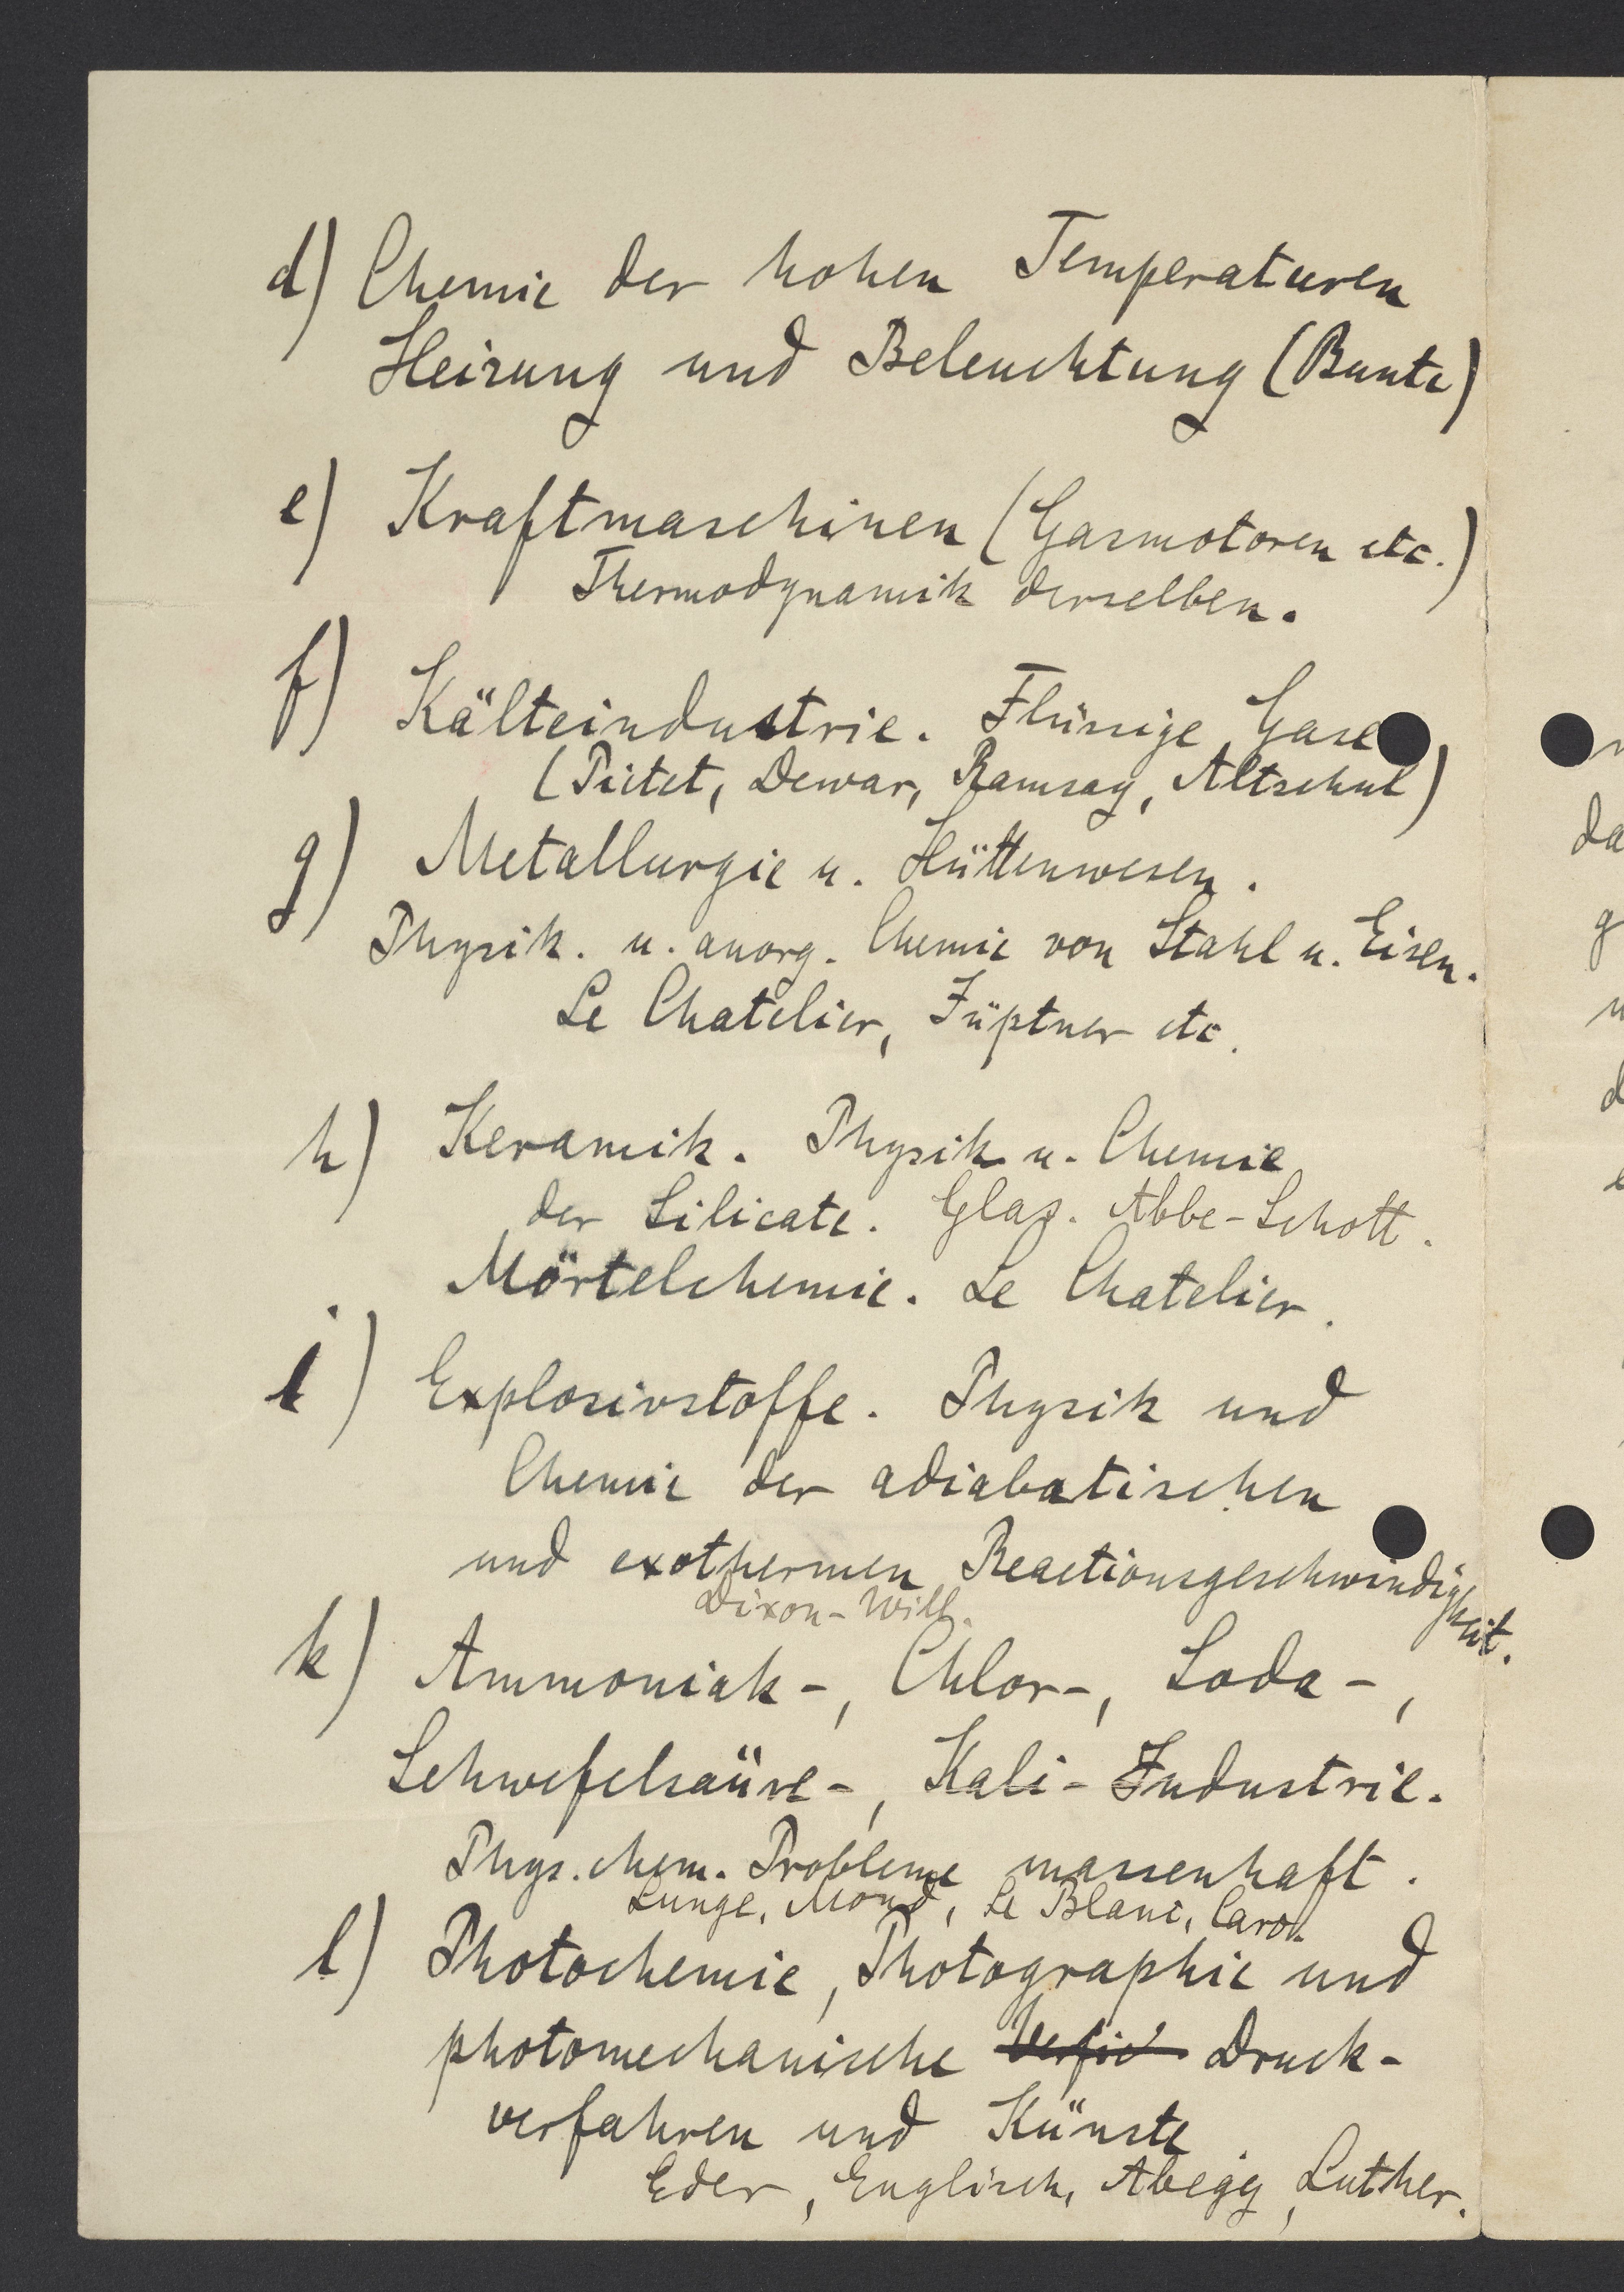 d) Chemie der hohen Temperaturen
Heizung und Beleuchtung (Bunte)
e) Kraftmaschinen (Gasmotoren etc.)
Thermodynamik derselben.
f) Kälteindustrie. Flüssige Gase
(Pictet, Dewar, Ramsay, Altschul)
g) Metallurgie u. Hüttenwesen.
Physik. u. anorg. Chemie von Stahl u. Eisen.
Le Chatelier, Jüptner etc.
h) Keramik. Physik u. Chemie
der Silicate. Glas. Abbe-Schott.
Mörtelchemie. Le Chatelier.
i) Explosivstoffe. Physik und
Chemie der adiabatischen
und exothermen Reactionsgeschwindigkeit.
Dixon-Will.
k) Ammoniak-, Chlor-, Soda-,
Schwefelsäure-, Kali-Industrie.
Phys. chem. Probleme massenhaft.
Lunge, Mond, Le Blanc, Caro.
l) Photochemie, Photographie und
photomechanische Druck-
verfahren und Künste.
Eder, Englisch, Abegg, Luther.
da
g